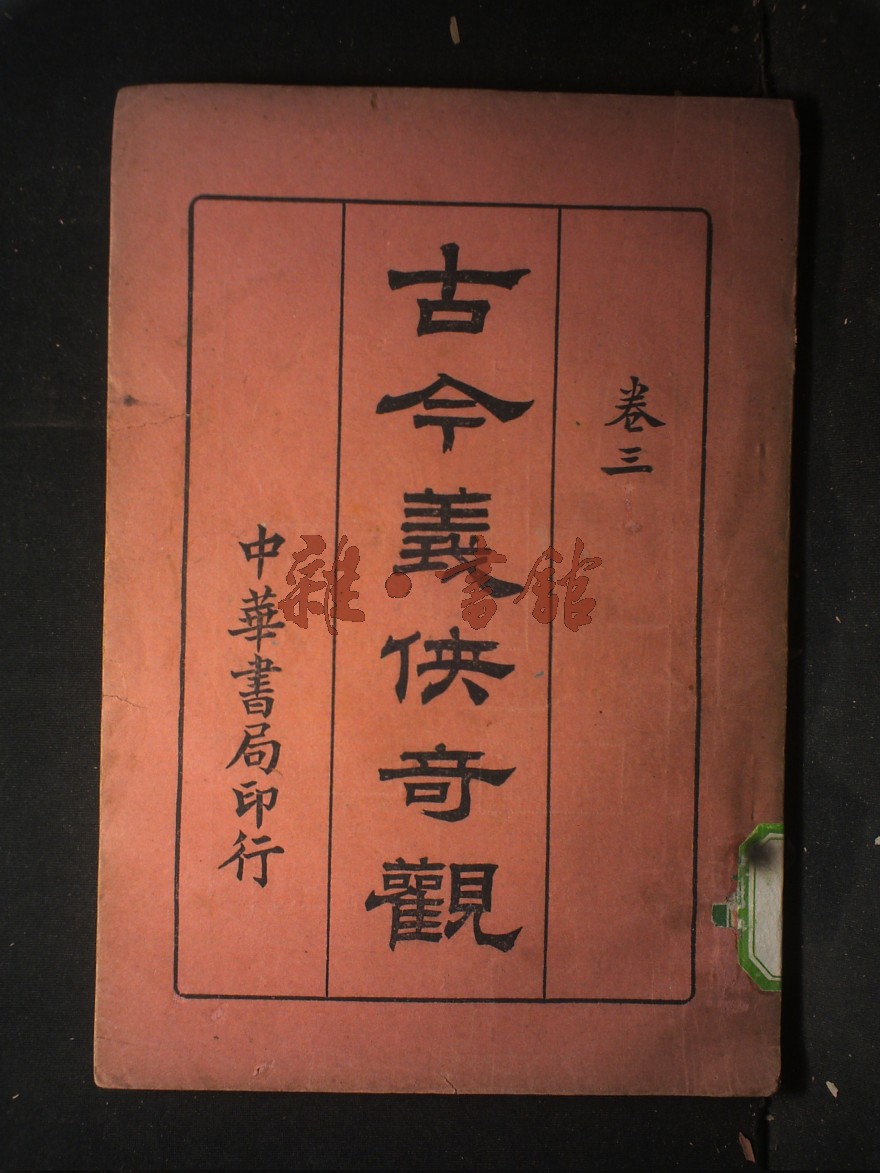 卷三
古今義俠奇觀
中華書局印行
雜·書館